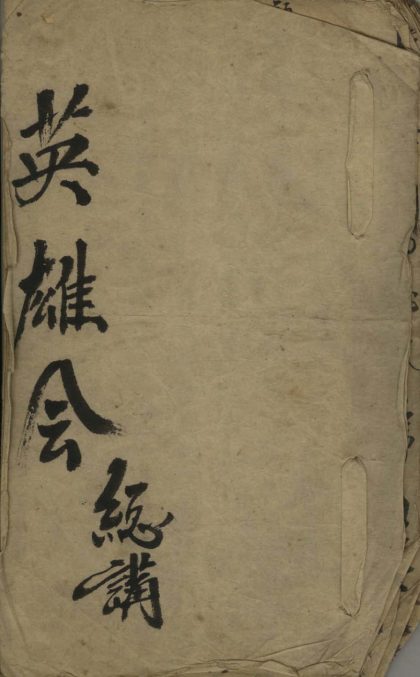 英雄会
総講